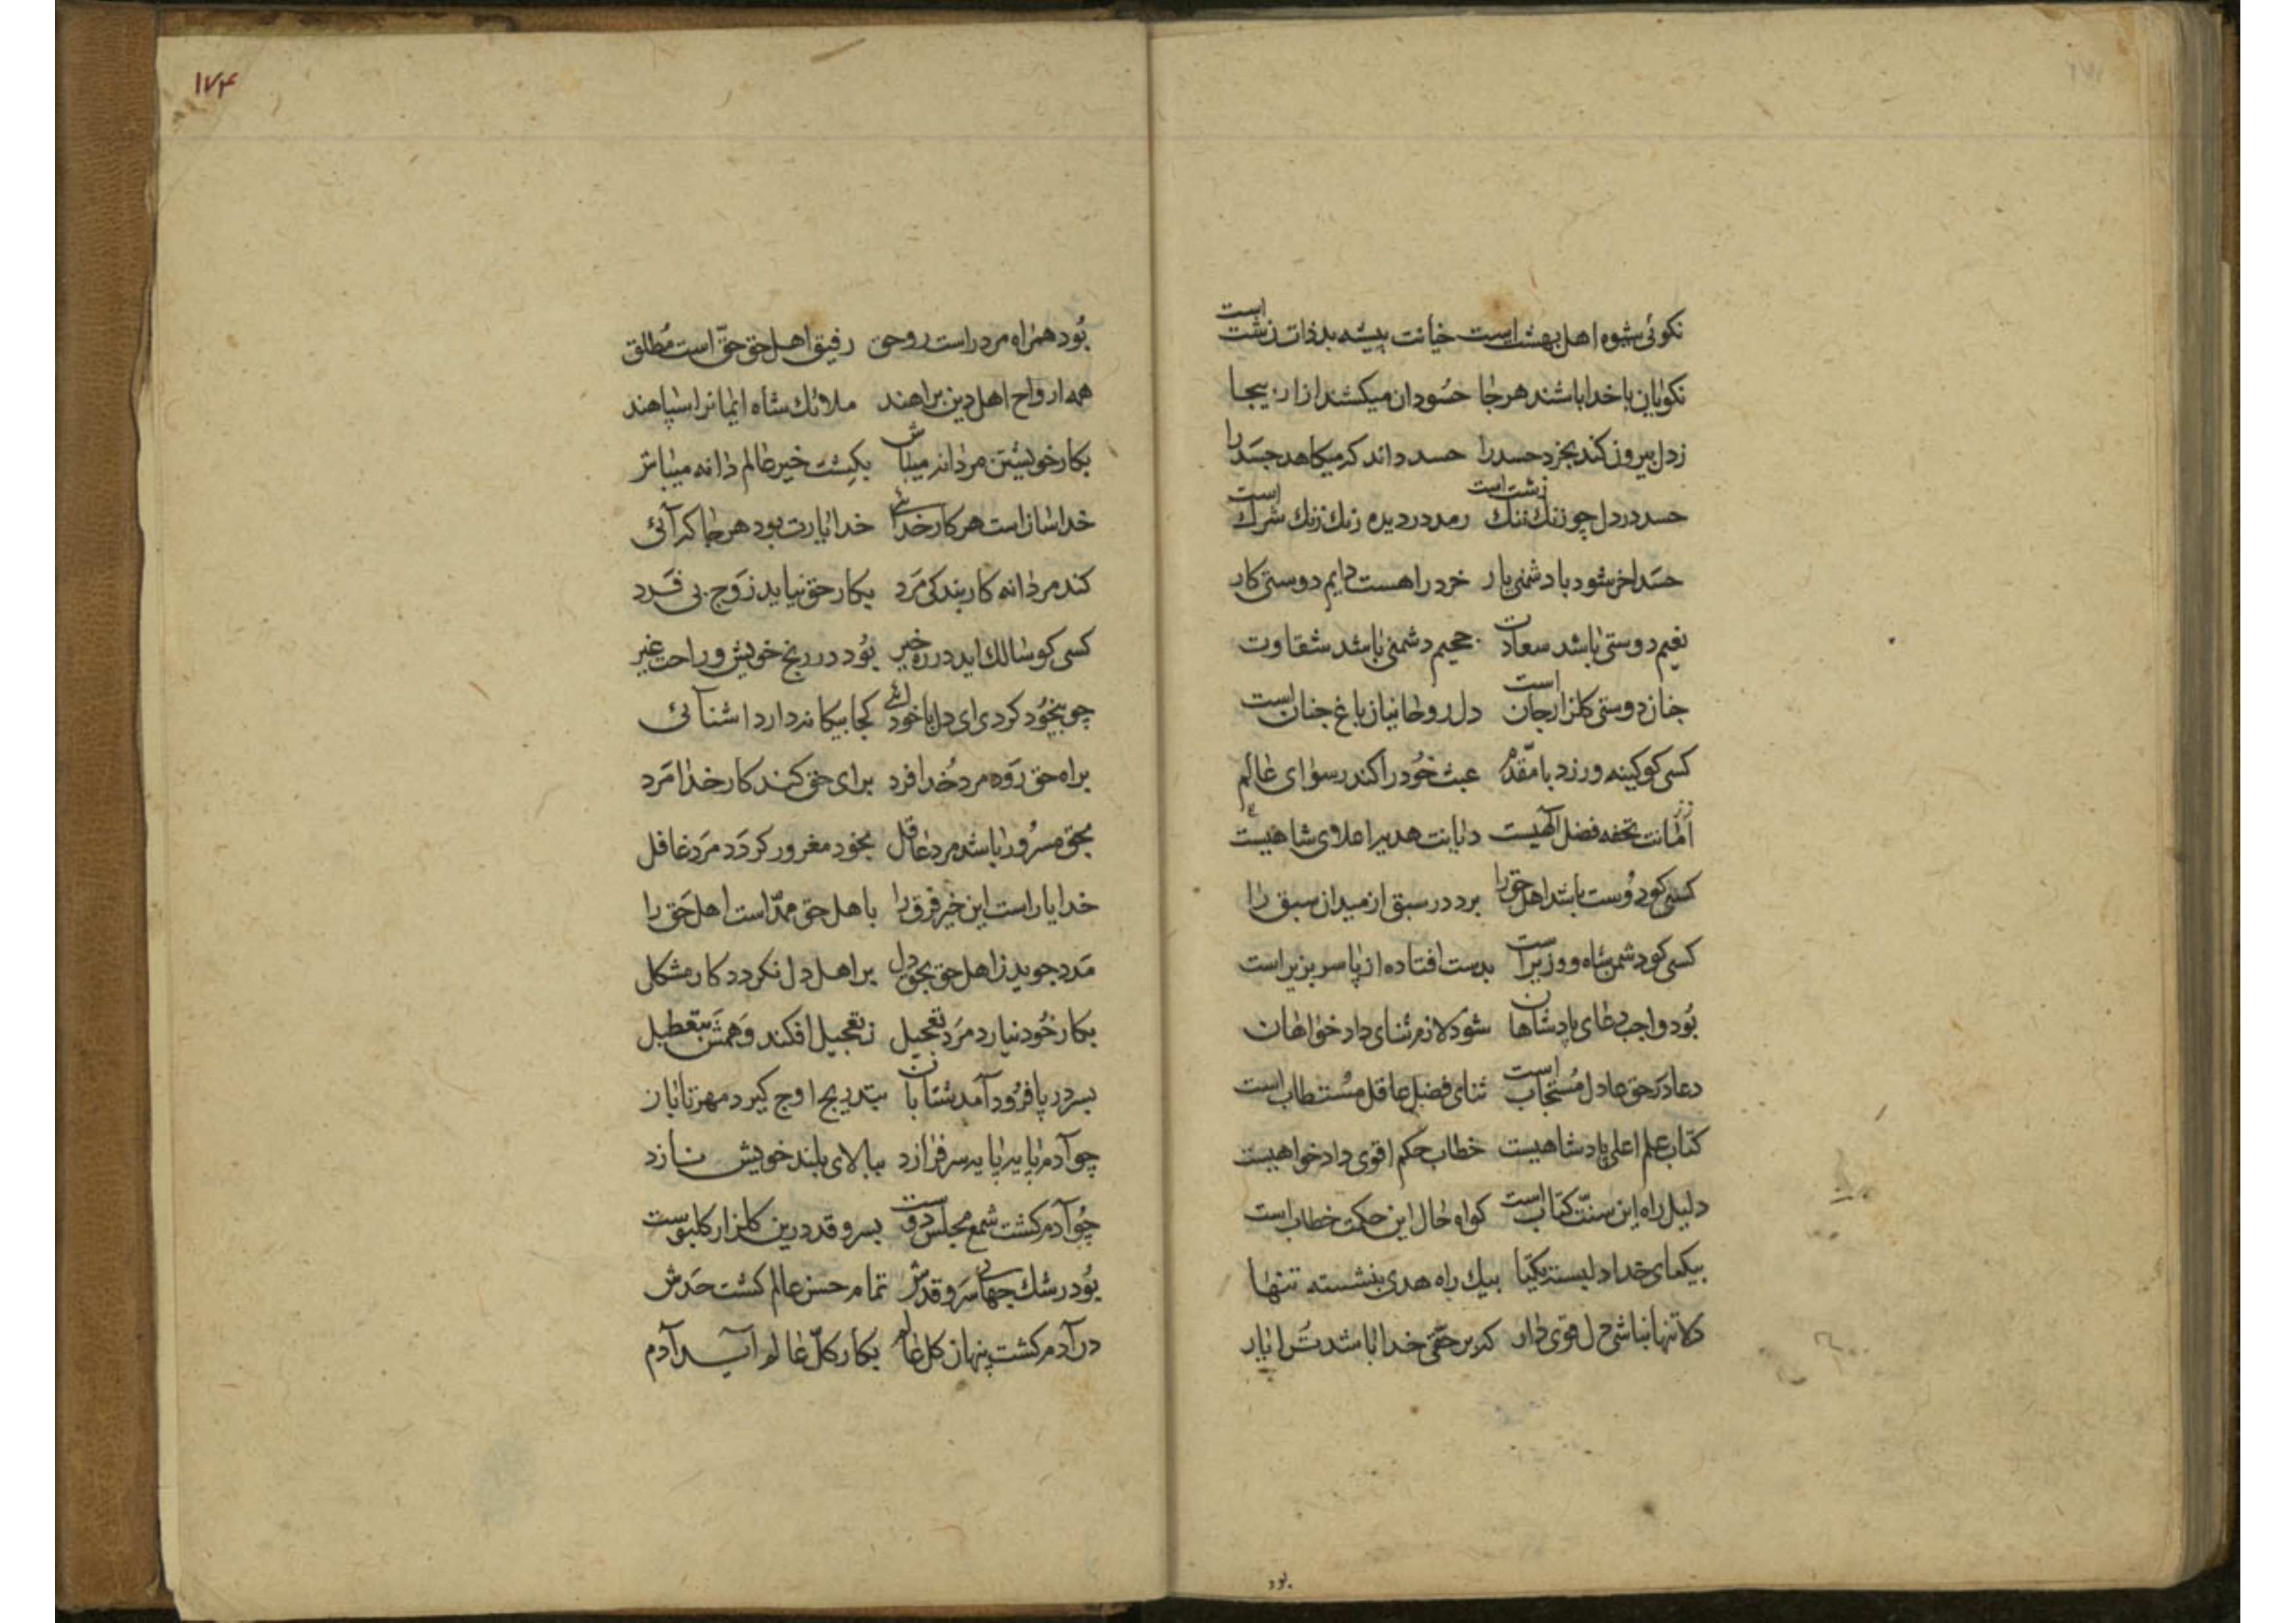 نکوئی شیوه اهل بهشت است خیانت پیشه بدذات زشت است
نکویان با خدا باشند هرجا حسودان میکشند ازار بیجا
زدل بیرون کند بخرد حسد را حسد داند که میکاهد جسد را
حسد در دل چو زنک زشت است رمد در دیده زنک شرک است
حسد اخر شود با دشمنی یار خرد را هست دایم دوستی کار
نعیم دوستی باشد سعادت جحیم دشمنی باشد شقاوت
جنان دوستی کلزار جان است دل روحانیان باغ جنان است
کسی کو کینه ورزد با مقدم عبث خود را کند رسوای عالم
امانت تحفه فضل آلهیست دیانت هدیه اعلای شاهیست
کسی کو دوست باشد اهل حق را برد در سبق از میدان سبق را
کسی کو دشمن شاه و وزیر است بدست افتاده از پا سر بزیر است
بود واجب دعای پادشاهان شود لازم ثنای دادخواهان
دعا در حق عادل مستجاب است ثنای فضل عاقل مستطاب است
کتاب علم اعلی پادشاهیست خطاب حکم اقوی دادخواهیست
دلیل راه این سنت کتاب است کواه حال این حکمت خطاب است
بیکتای خدا دل بسته یکتا بیک راه هدی بنشسته تنها
دلا تنها نباشی دل قوی دار که بر حقی خدا باشد ترا یار
بود
۱۷۴
بود همراه مرد راست رو حق رفیق اهل حق حق است مطلق
همه ارواح اهل دین براهند ملائک شاه ایمانرا سپاهند
بکار خویشتن مردانه میباش بکشت خیر عالم دانه میباش
خداساز است هر کار خدائے خدا یارت بود هرجا که آئی
کند مردانه کار بندکی مرد بکار حق نیاید زوج بی فرد
کسی کو سالک اید در ره خیر بود در رنج خویش و راحت غیر
چو بیخود کردی ای دل با خدائے کجا بیکانه دارد اشنائی
براه حق رود مرد خدا فرد برای حق کند کار خدا مرد
بحق مسرور باشد مرد عاقل بخود مغرور کردد مرد غافل
خدا یار است این خیر فرق را باهل حق ممد است اهل حق را
مدد جوید ز اهل حق بحق دل بر اهل دل نکردد کار مشکل
بکار خود نیارد مرد تعجیل ز تعجیل افکند وهمش بتعطیل
بسر در پا فرود آمد شتابان بتدریج اوج کیرد مهر تابان
چو آدم پایه پایه سر فرازد ببالای بلند خویش نازد
چو آدم کشت شمع مجلس دوست بسرو قد درین کلزار کلبوست
بود رشک جهان سرو قدش تمام حسن عالم کشت حدش
در آدم کشت پنهان کل عالم بکار کل عالم آید آدم